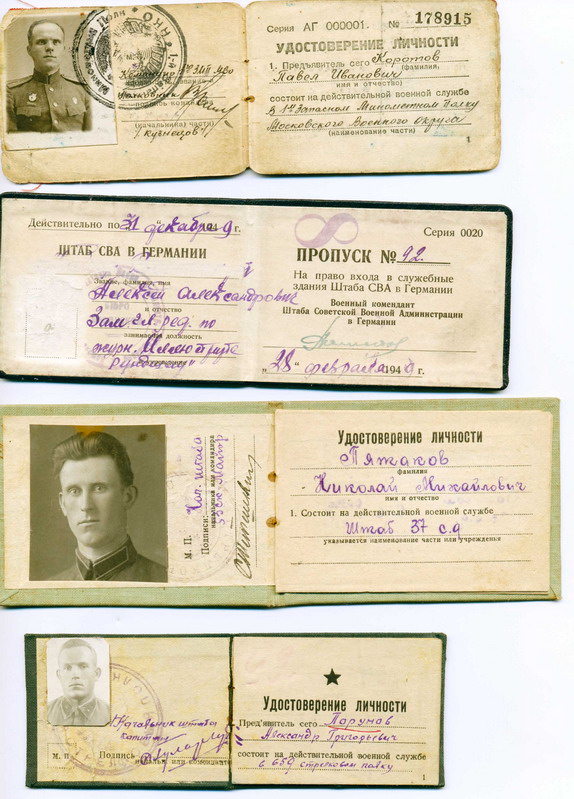 Серия АГ 000001. № 178915
УДОСТОВЕРЕНИЕ ЛИЧНОСТИ
1. Предъявитель сего Коротов
фамилия,
Павел Иванович
имя и отчество)
состоит на действительной военной службе
в 1м Запасном Минометном Полку
Московского Военного Округа
(наименование части)
1
Командир 1го ЗМП МВО
Полковник
подпись
(начальника) части)
/Кузнецов/
Действительно по 31 декабря 1949 г.
ШТАБ СВА В ГЕРМАНИИ
Звание, фамилия, имя
Алексей Александрович
и отчество
Зам гл. ред. по
занимаемая должность
журн.
Серия 0020
ПРОПУСК № 92.
На право входа в служебные
здания Штаба СВА в Германии
Военный комендант
Штаба Советской Военной Администрации
в Германии
„28 февраля 1949 г.
М. П.
Подпись: Нач. штаба
начальника или командира
Удостоверение личности
Пяжаков
фамилия
Николай Михайлович
имя и отчество
1. Состоит на действительной военной службе
Штаб 37 с.д
указывается наименование части или учреждения
Начальник штаба
капитан
М. П. Подпись
Удостоверение личности
Пред'явитель сего Парумов
Александр Григорьевич
состоит на действительной военной службе
в 659 стрелковом полку
1